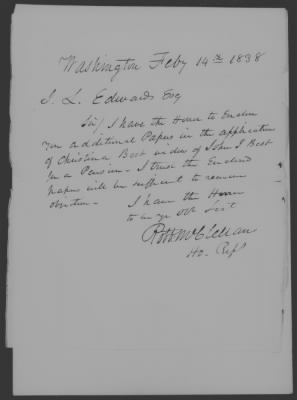 Washington Feby 14th 1838
J. L. Edwards Esq
Sir/ I have the Honor to Enclose
you additional Papers in the application
of Christina Best widow of John J Best
for a Pension - I trust the Enclosed
papers will be sufficient to remove
objection -
I have the Honor
to be yr obt Svt
Robt McClellan
Ho. Reps